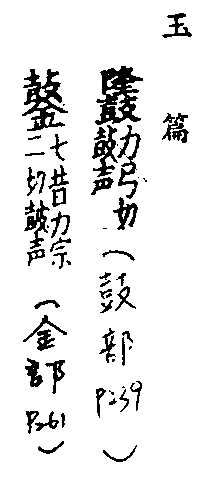 玉篇
鼜力弓切鼓声(鼓部P239)
鏧七昔力宗二切鼓声(金部P261)